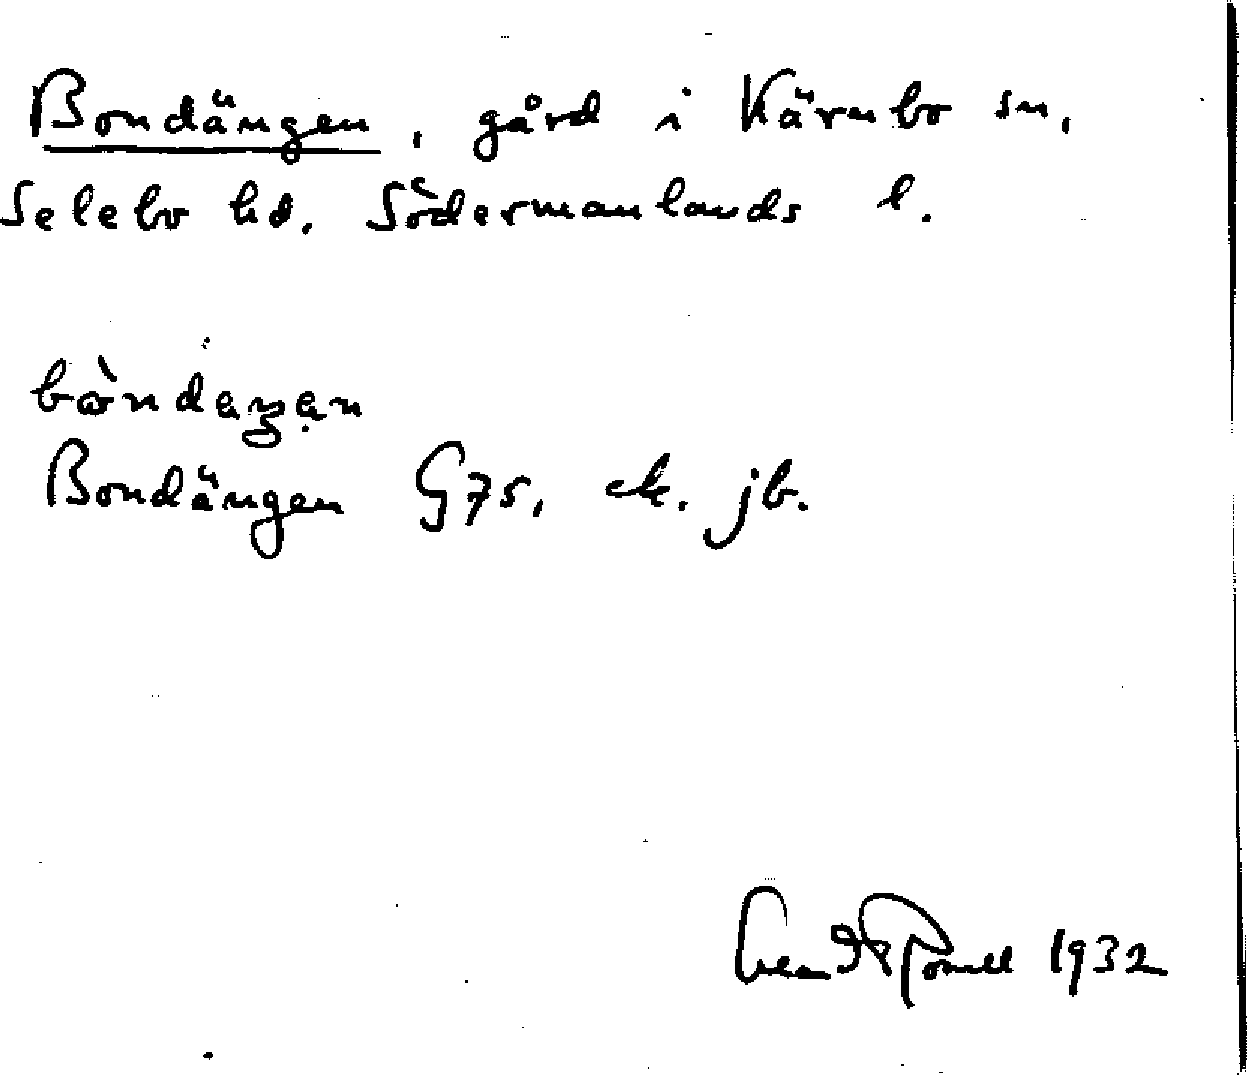 Bondängen, gård i Kärnbo sn,
Selebo hd. Södermanlands l.
Bondängen G75, ek. jb.
1932